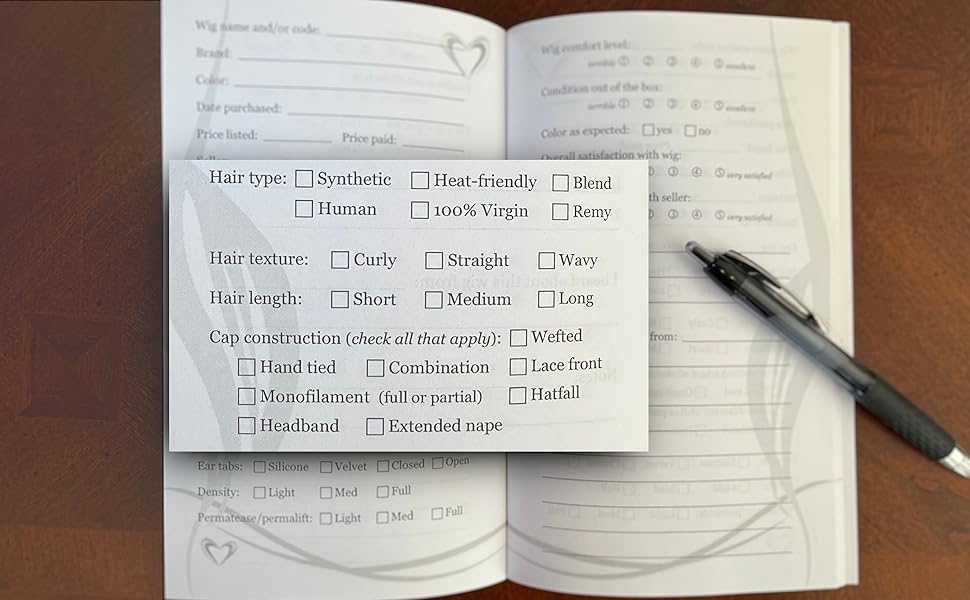 Wig name and/or code:
Brand:
Color:
Date purchased:
Price listed: Price paid:
Seller:
Hair type: Synthetic Heat-friendly Blend
Human 100% Virgin Remy
Hair texture: Curly Straight Wavy
Hair length: Short Medium Long
Cap construction (check all that apply): Wefted
Hand tied Combination Lace front
Monofilament (full or partial) Hatfall
Headband Extended nape
Ear tabs: Silicone Velvet Closed Open
Density: Light Med Full
Permatease/permalift: Light Med Full
Wig comfort level:
terrible ① ② ③ ④ ⑤ excellent
Condition out of the box:
terrible ① ② ③ ④ ⑤ excellent
Color as expected: yes no
Overall satisfaction with wig:
③ ④ ⑤ very satisfied
th seller:
③ ④ ⑤ very satisfied
from: